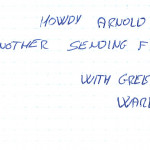 HOWDY ARNOLD
NOTHER SENDING F
WITH GREE
WAR